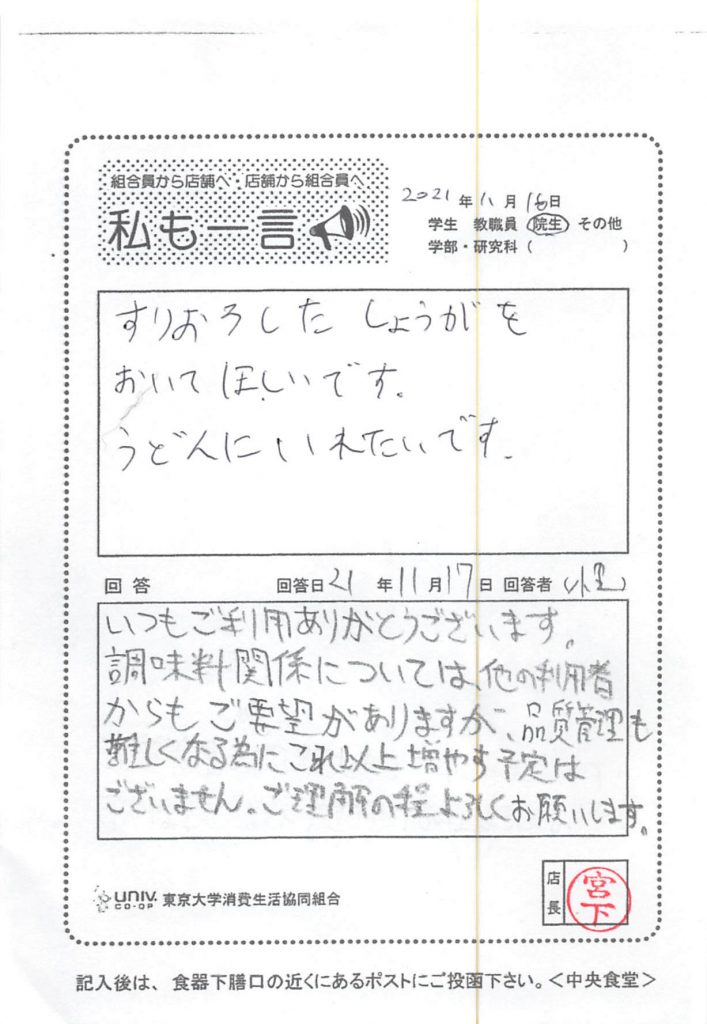 組合員から店舗へ・店舗から組合員へ
私も一言
2021年11月16日
学生 教職員 院生 その他
学部・研究科( )
すりおろした しょうがを
おいて ほしいです。
うどんに いれたいです。
回答 回答日 21年11月17日 回答者(小里)
いつもご利用ありがとうございます。
調味料関係については、他の利用者
からもご要望がありますが、品質管理も
難しくなる為にこれ以上増やす予定は
ございません。ご理解の程よろしくお願いします。
UNIV. CO-OP 東京大学消費生活協同組合
店長 宮下
記入後は、食器下膳口の近くにあるポストにご投函下さい。<中央食堂>